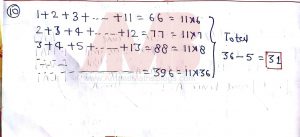 10
1+2+3+-----+11=66=11×6
2+3+4+-----+12=77=11×7
3+4+5+-----+13=88=11×8
=396=11×36
Total
36-5=31